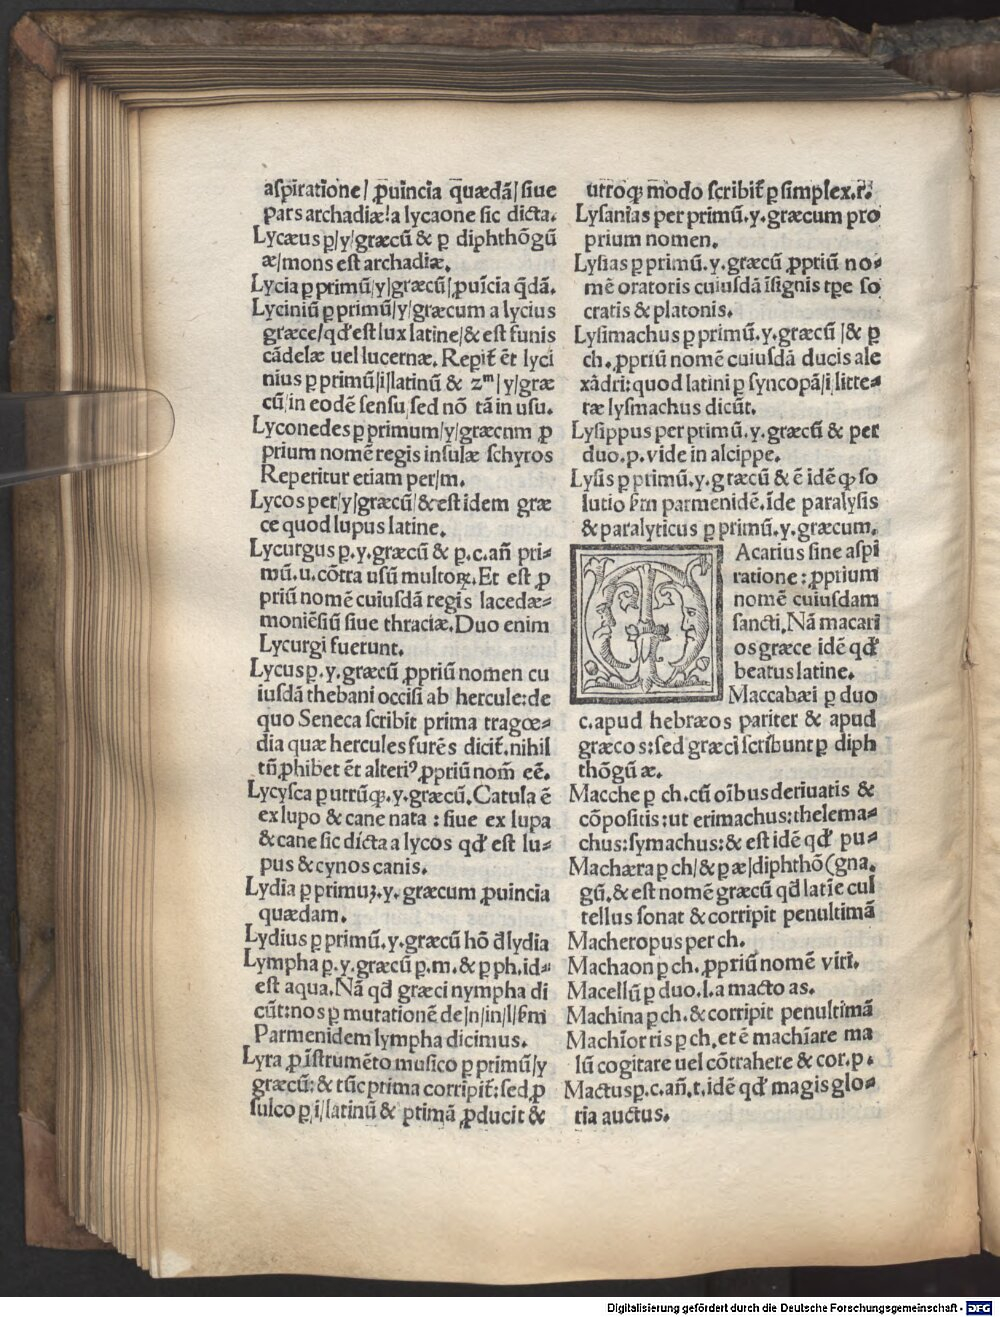 aſpiratione/ ꝓuincia quædā/ ſiue
pars archadiæ!a lycaone ſic dicta.
Lycæus ꝑ/y/græcū & ꝑ diphthōgū
æ/mons eſt archadiæ.
Lycia ꝑ primū/y/græcū/ꝓuīcia q̄dā.
Lyciniū ꝑ primū/y/græcum a lycius
græce/qđ eſt lux latine/& eſt funis
cādelæ uel lucernæ. Reꝑit̄ ēt lyci
nius ꝑ primū/i/latinū & zᵐ/y/græ
cū/in eodē ſenſu ſed nō tā in uſu.
Lyconedes ꝑ primum/y/græcnm ꝓ
prium nomē regis inſulæ ſchyros
Reperitur etiam per/m.
Lycos per/y/græcū/& eſt idem græ
ce quod lupus latine.
Lycurgus ꝑ.y.græcū & ꝑ.c.añ pri⸗
mū.u.cōtra uſū multoꝝ. Et eſt ꝓ
priū nomē cuiuſdā regis lacedæ⸗
moniēſiū ſiue thraciæ. Duo enim
Lycurgi fuerunt.
Lycus ꝑ.y.græcū ꝓpriū nomen cu
iuſdā thebani occiſi ab hercule:de
quo Seneca ſcribit prima tragœ⸗
dia quæ hercules furēs dicit̄.nihil
tñ ꝓhibet ēt alteriꝰ ꝓpriū nom̄ eē.
Lycyſca ꝑ utrūqꝫ.y.græcū. Catula ē
ex lupo & cane nata : ſiue ex lupa
& cane ſic dicta a lycos qđ eſt lu⸗
pus & cynos canis.
Lydia ꝑ primuꝫ.y.græcum ꝓuincia
quædam.
Lydius ꝑ primū.y.græcū hō đ lydia
Lympha ꝑ.y.græcū ꝑ.m.& ꝑ ph.id⸗
eſt aqua. Nā qđ græci nympha di
cūt:nos ꝑ mutationē de/n/in/l/ẜm
Parmenidem lympha dicimus.
Lyra ꝓ īſtrumēto muſico ꝑ primū/y
græcū: & tūc prima corripit̄:ſed ꝓ
ſulco ꝑ/i/latinū & ꝑtimā ꝓducit &
utroqꝫ modo ſcribit̄ ꝑ ſimplex.r.
Lyſanias per primū.y.græcum pro
prium nomen.
Lyſias ꝑ primū.y.græcū ꝓpriū no⸗
mē oratoris cuiuſdā īſignis tꝑe ſo
cratis & platonis.
Lyſimachus ꝑ primū.y.græcū/& ꝑ
ch.ꝓpriū nomē cuiuſdā ducis ale
xādri:quod latini ꝑ ſyncopā/i/litte⸗
ræ lyſmachus dicūt.
Lyſippus per ptimū.y.græcū & per
duo.p.vide in alcippe.
Lyſis ꝑ ptimū.y.græcū & ē idē qꝫ ſo
lutio ẜm parmenidē.īde paralyſis
& paralyticus ꝑ primū.y.græcum.
M
Acarius ſine aſpi
ratione : ꝓprium
nomē cuiuſdam
ſancti. Nā macari
os græce idē qđ
beatus latine.
Maccabæi ꝑ duo
c.apud hebræos pariter & apud
græcos:ſed græci ſcribunt ꝑ diph
thōgū æ.
Macche ꝑ ch.cū oībus deriuatis &
cōpoſitis:ut erimachus:thelema⸗
chus:ſymachus:& eſt idē qđ pu⸗
Machæra ꝑ ch/& ꝑ æ/diphthō(gna.
gū.& eſt nomē græcū qđ latīe cul
tellus ſonat & corripit penultimā
Macheropus per ch.
Machaon ꝑ ch.ꝓpriū nomē viri.
Macellū ꝑ duo.l.a macto as.
Machina ꝑ ch.& corripit penultimā
Machīor ris ꝑ ch.et ē machīare ma
lū cogitare uel cōtrahere & cor.p.
Mactus ꝑ.c.añ.t.idē qđ magis glo⸗
ria auctus.
Digitalisierung gefördert durch die Deutsche Forschungsgemeinschaft - DFG